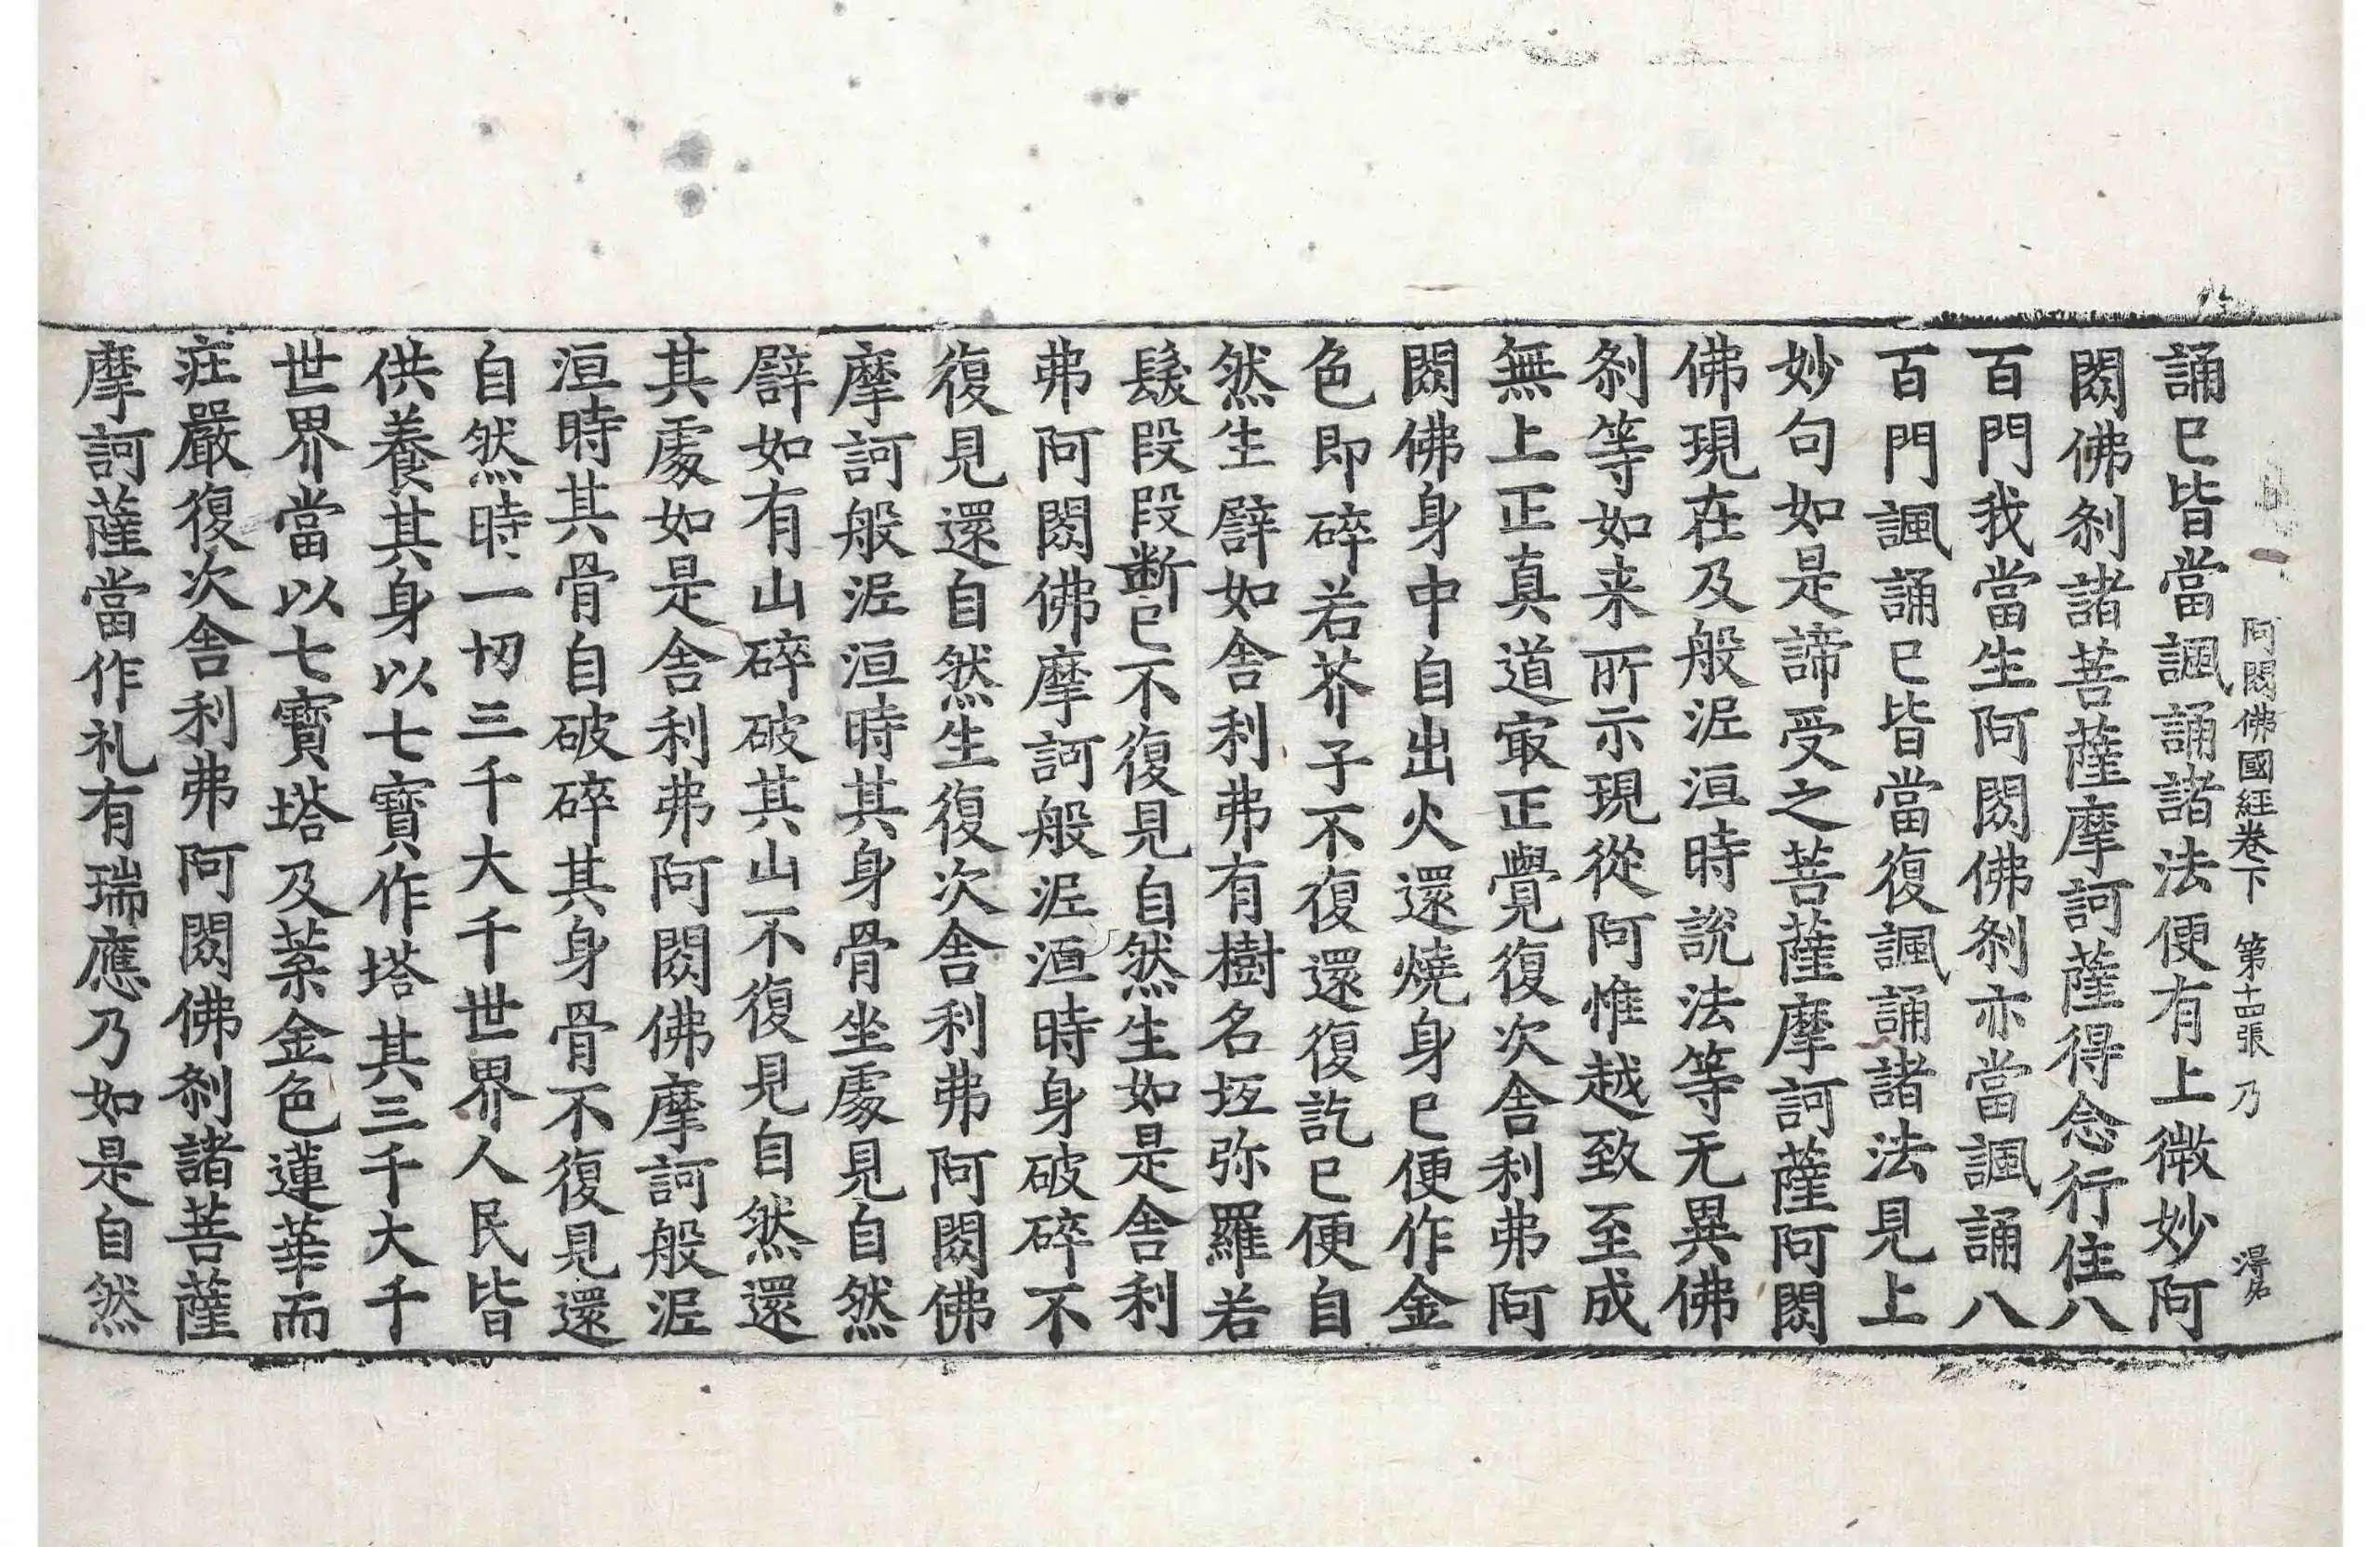 阿閦佛國經卷下 第十四張 乃 得名
誦已皆當諷誦諸法便有上微妙阿
閦佛刹諸菩薩摩訶薩得念行住八
百門我當生阿閦佛刹亦當諷誦八
百門諷誦已皆當復諷誦諸法見上
妙句如是諦受之菩薩摩訶薩阿閦
佛現在及般泥洹時說法等无異佛
刹等如来所示現從阿惟越致至成
無上正真道㝡正覺復次舍利弗阿
閦佛身中自出火還燒身已便作金
色即碎若芥子不復還復訖已便自
然生譬如舍利弗有樹名坘弥羅若
髮段段斷已不復見自然生如是舍利
弗阿閦佛摩訶般泥洹時身破碎不
復見還自然生復次舍利弗阿閦佛
摩訶般泥洹時其身骨坐處見自然
譬如有山碎破其山不復見自然還
其處如是舍利弗阿閦佛摩訶般泥
洹時其骨自破碎其身骨不復見還
自然時一切三千大千世界人民皆
供養其身以七寶作塔其三千大千
世界當以七寶塔及葉金色蓮華而
庄嚴復次舍利弗阿閦佛刹諸菩薩
摩訶薩當作礼有瑞應乃如是自然